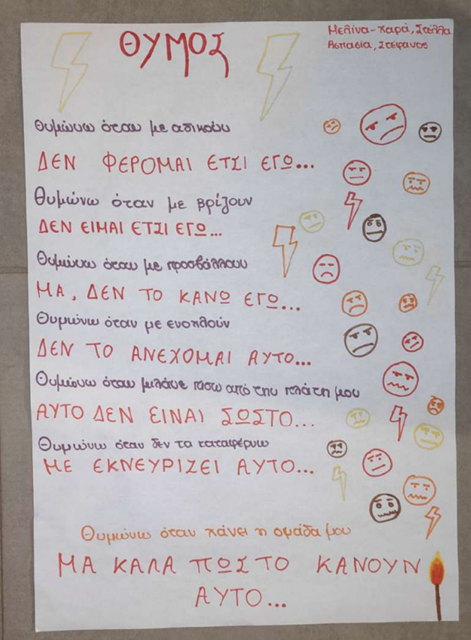 ΘΥΜΟΣ
Μελίνα-Χαρά, Στέλλα
Ασπασία, Στέφανος
Θυμώνω όταν με αδικούν
ΔΕΝ ΦΕΡΟΜΑΙ ΕΤΣΙ ΕΓΩ...
Θυμώνω όταν με βρίζουν
ΔΕΝ ΕΙΜΑΙ ΕΤΣΙ ΕΓΩ...
Θυμώνω όταν με προσβάλλουν
ΜΑ, ΔΕΝ ΤΟ ΚΑΝΩ ΕΓΩ...
Θυμώνω όταν με ενοχλούν
ΔΕΝ ΤΟ ΑΝΕΧΟΜΑΙ ΑΥΤΟ...
Θυμώνω όταν μιλάνε πίσω από την πλάτη μου
ΑΥΤΟ ΔΕΝ ΕΙΝΑΙ ΣΩΣΤΟ...
Θυμώνω όταν δεν τα καταφέρνω
ΜΕ ΕΚΝΕΥΡΙΖΕΙ ΑΥΤΟ...
Θυμώνω όταν χάνει η ομάδα μου
ΜΑ ΚΑΛΑ ΠΩΣ ΤΟ ΚΑΝΟΥΝ
ΑΥΤΟ...